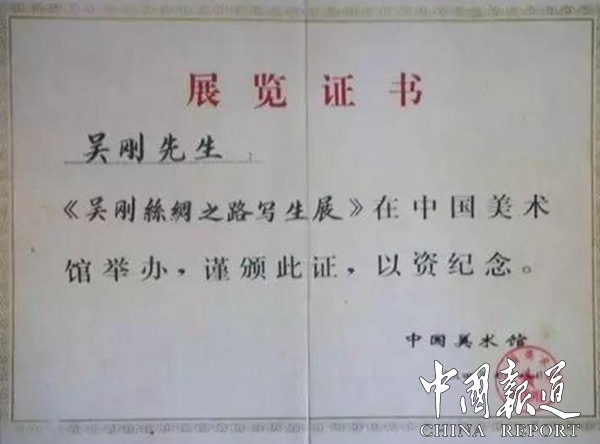 展览证书
吴刚先生：
《吴刚絲綢之路写生展》在中国美术
馆举办，谨颁此证，以资纪念。
中国美术馆
中國報道
CHINA REPORT